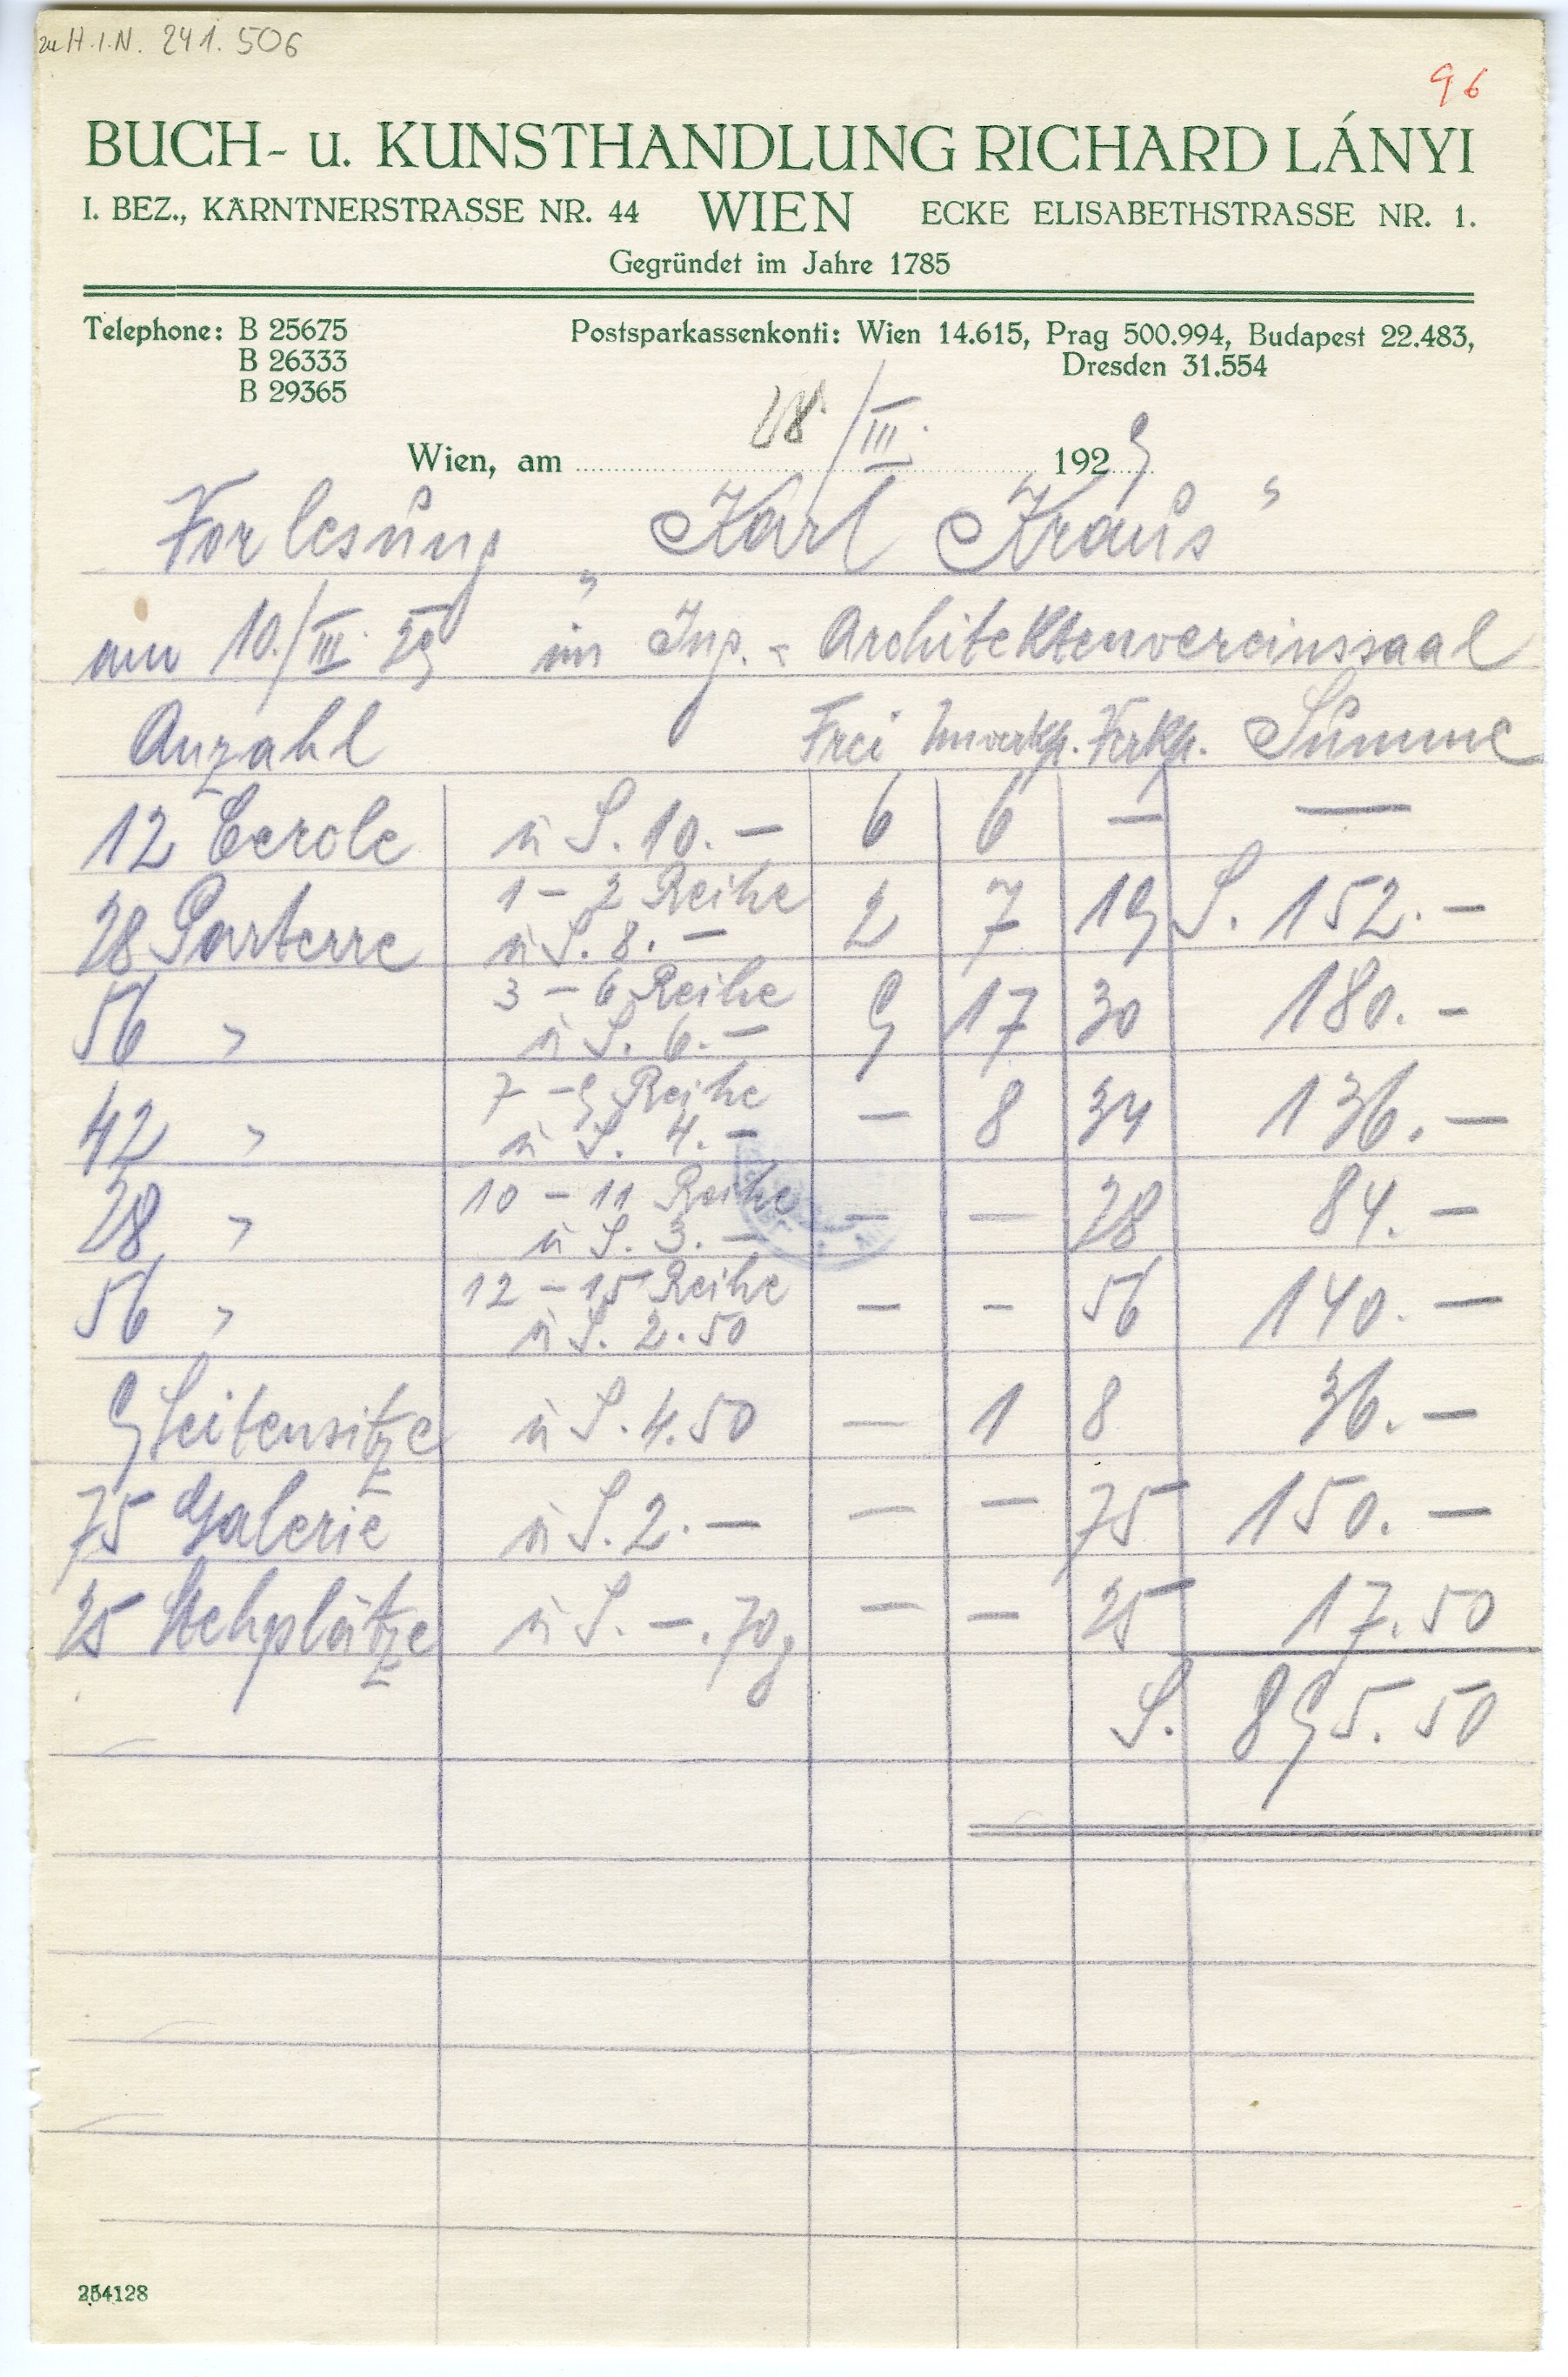 zu H.I.N. 241.506
96
BUCH- u. KUNSTHANDLUNG RICHARD LÁNYI
I. BEZ., KÄRNTNERSTRASSE NR. 44 WIEN ECKE ELISABETHSTRASSE NR. 1.
Gegründet im Jahre 1785
Telephone: B 25675 Postsparkassenkonti: Wien 14.615, Prag 500.994, Budapest 22.483,
B 26333 Dresden 31.554
B 29365
Wien, am 28./III. 1929
Vorlesung „Karl Kraus"
am 10./III. 29 im Ing.- Architektenvereinssaal
Anzahl Frei Unverkp. Verkp. Summe
12 Cercle à S. 10.— 6 6 — —
28 Parterre 1 – 2 Reihe à S. 8.— 2 7 19 S. 152.—
56 " 3 – 6 Reihe à S. 6.— 9 17 30 180.—
42 " 7 – 9 Reihe à S. 4.— — 8 34 136.—
28 " 10 – 11 Reihe à S. 3.— — — 28 84.—
56 " 12 – 15 Reihe à S. 2.50 — — 56 140.—
9 Seitensitze à S. 4.50 — 1 8 36.—
75 Galerie à S. 2.— — — 75 150.—
25 Stehplätze à S. —.70g — — 25 17.50
S. 895.50
254128